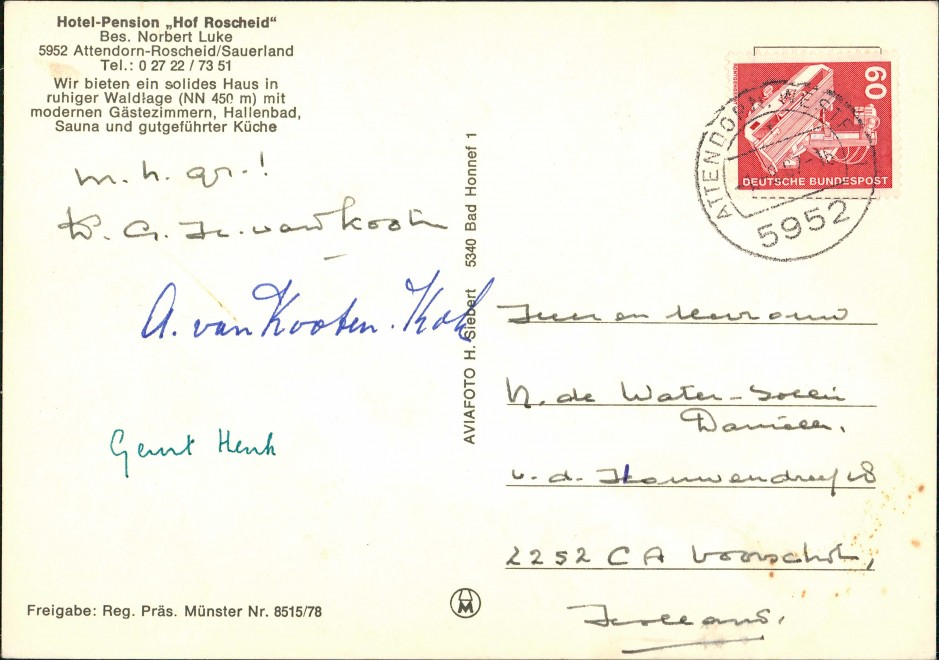 Hotel-Pension „Hof Roscheid“
Bes. Norbert Luke
5952 Attendorn-Roscheid/Sauerland
Tel.: 0 27 22 / 73 51
Wir bieten ein solides Haus in
ruhiger Waldlage (NN 450 m) mit
modernen Gästezimmern, Hallenbad,
Sauna und gutgeführter Küche
m. h. gr.!
van Kooten
A. van Kooten. Kok
Gerrit Henk
Freigabe: Reg. Präs. Münster Nr. 8515/78
AVIAFOTO H. Siebert 5340 Bad Honnef 1
60
DEUTSCHE BUNDESPOST
ATTENDORN, WESTF
5952
en Mevrouw
N. de Water-
v. d.
2252 CA Voorschoten,
Holland.